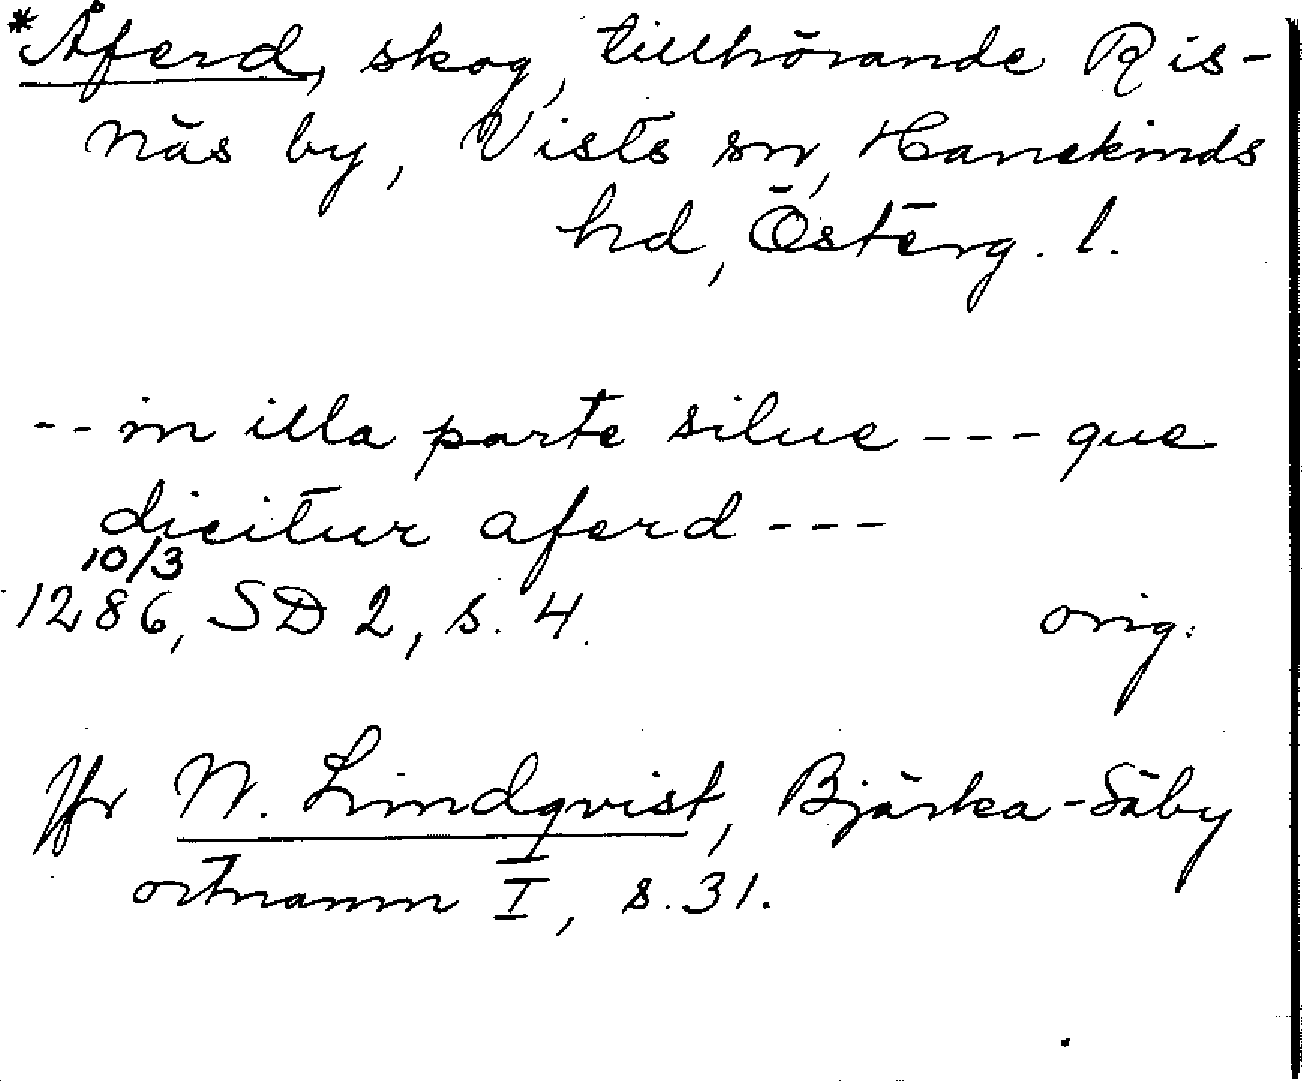 *Åferd, skog, tillhörande Ris-
näs by, Vists sn, Hanekinds
hd, Österg. l.
-- in illa parte silue --- que
dicitur aferd ---
10/3
1286, SD 2, s. 4. orig.
Jfr N. Lindqvist, Bjärka-Säby
ortnamn I, s. 31.